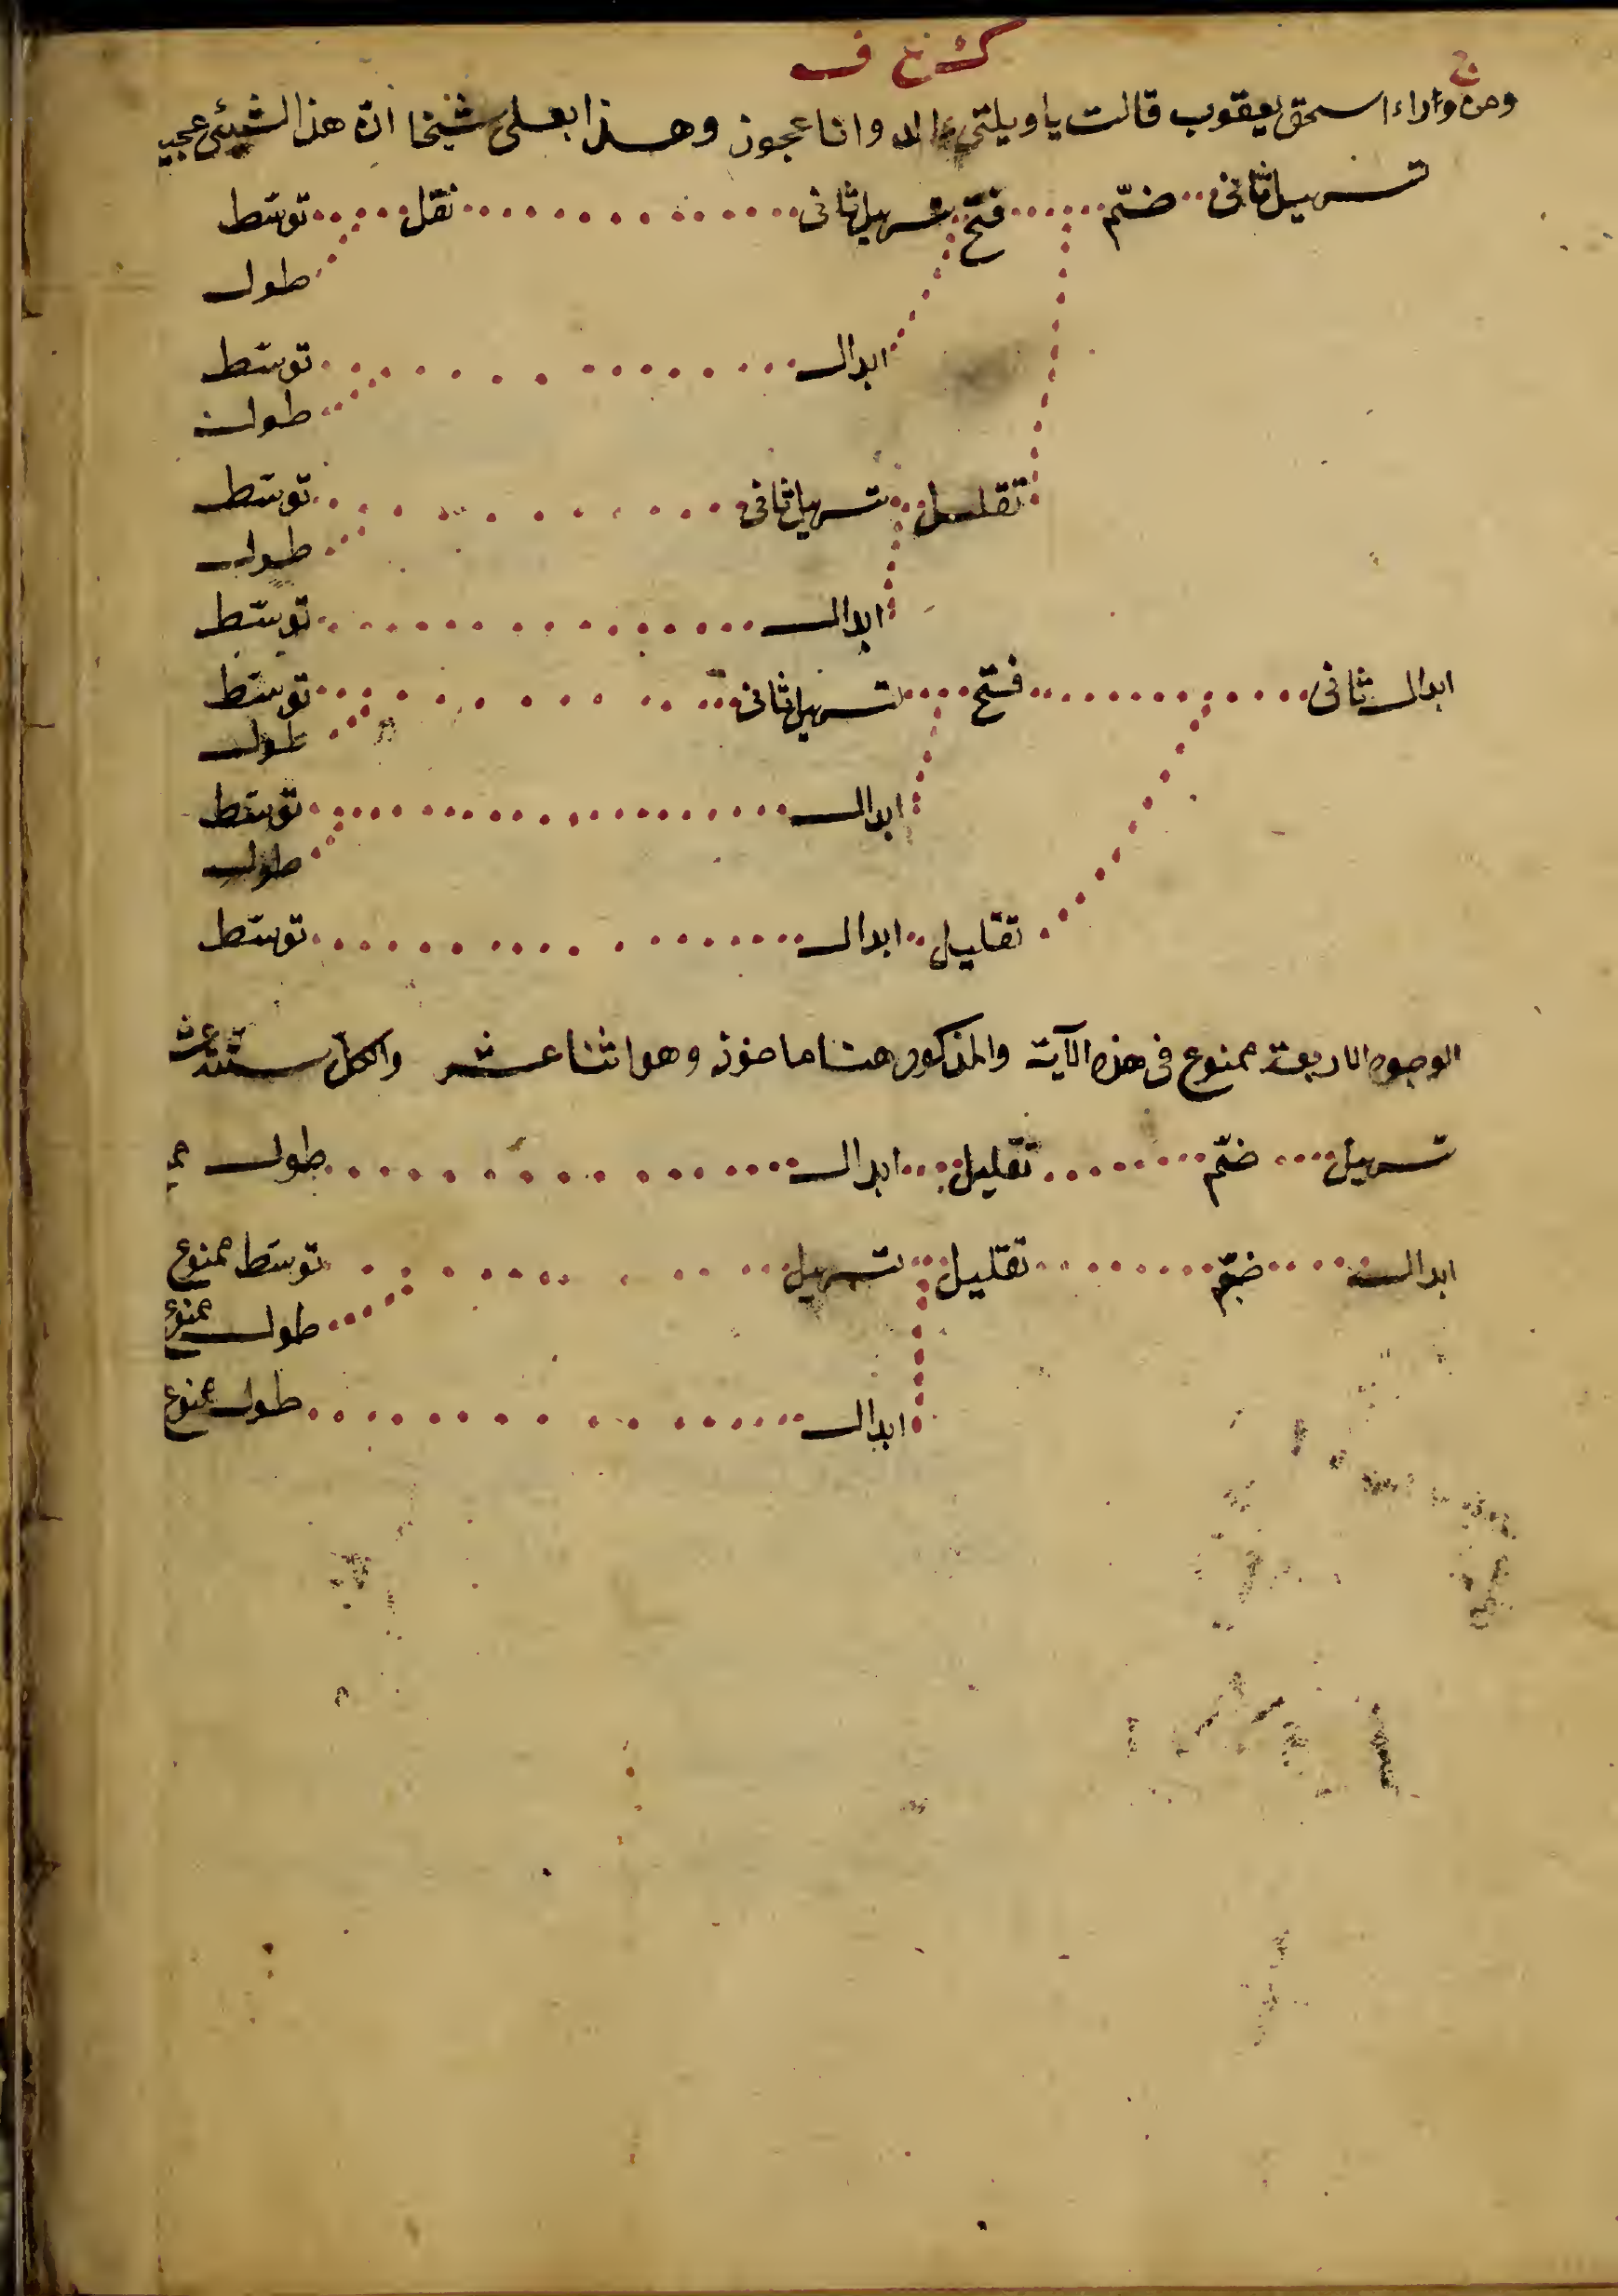 ج
ومن وراء اسحق يعقوب قالت ياويلتى ءالد وانا عجوز وهذا بعلى شيخا ان هذا لشيئ عجيب
تسهيل ثانى ضمّ فتح تسهيل ثانى نقل توسّط
طول
ابدال توسّط
طول
تقليل تسهيل ثانى توسّط
طول
ابدال توسّط
ابدال ثانى فتح تسهيل ثانى توسّط
طول
ابدال توسّط
طول
تقليل ابدال توسّط
الوجوه الاربعة ممنوع فى هذه الآية والمذكور هنا ماخوذ وهو اثنا عشر والكل ستة عشر
تسهيل ضمّ تقليل ابدال طول
ابدال ضمّ تقليل تسهيل توسّط ممنوع
طول ممنوع
ابدال طول ممنوع